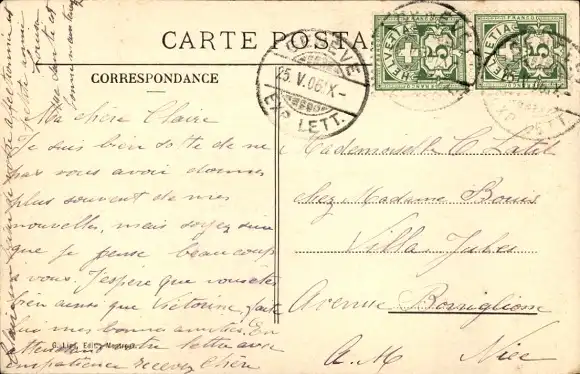 CARTE POSTALE
CORRESPONDANCE
Ma chère Claire
Je suis bien sotte de ne
pas vous avoir donner
plus souvent de mes
nouvelles, mais soyez sûre
que je pense beaucoup
a vous. J'espère que vous êtes
bien ainsi que Victorine, fait
lui mes bonnes amitiés. En
attendant votre lettre avec
impatience recevez chère
Mademoiselle C. Latil
chez Madame Bouis
Villa Jules
Avenue Borriglione
A. M. Nice
HELVETIA
FRANCO
5
HELVETIA
FRANCO
5
GENÈVE
25.V.06.X-
EXP. LETT.
EXP. LETT.